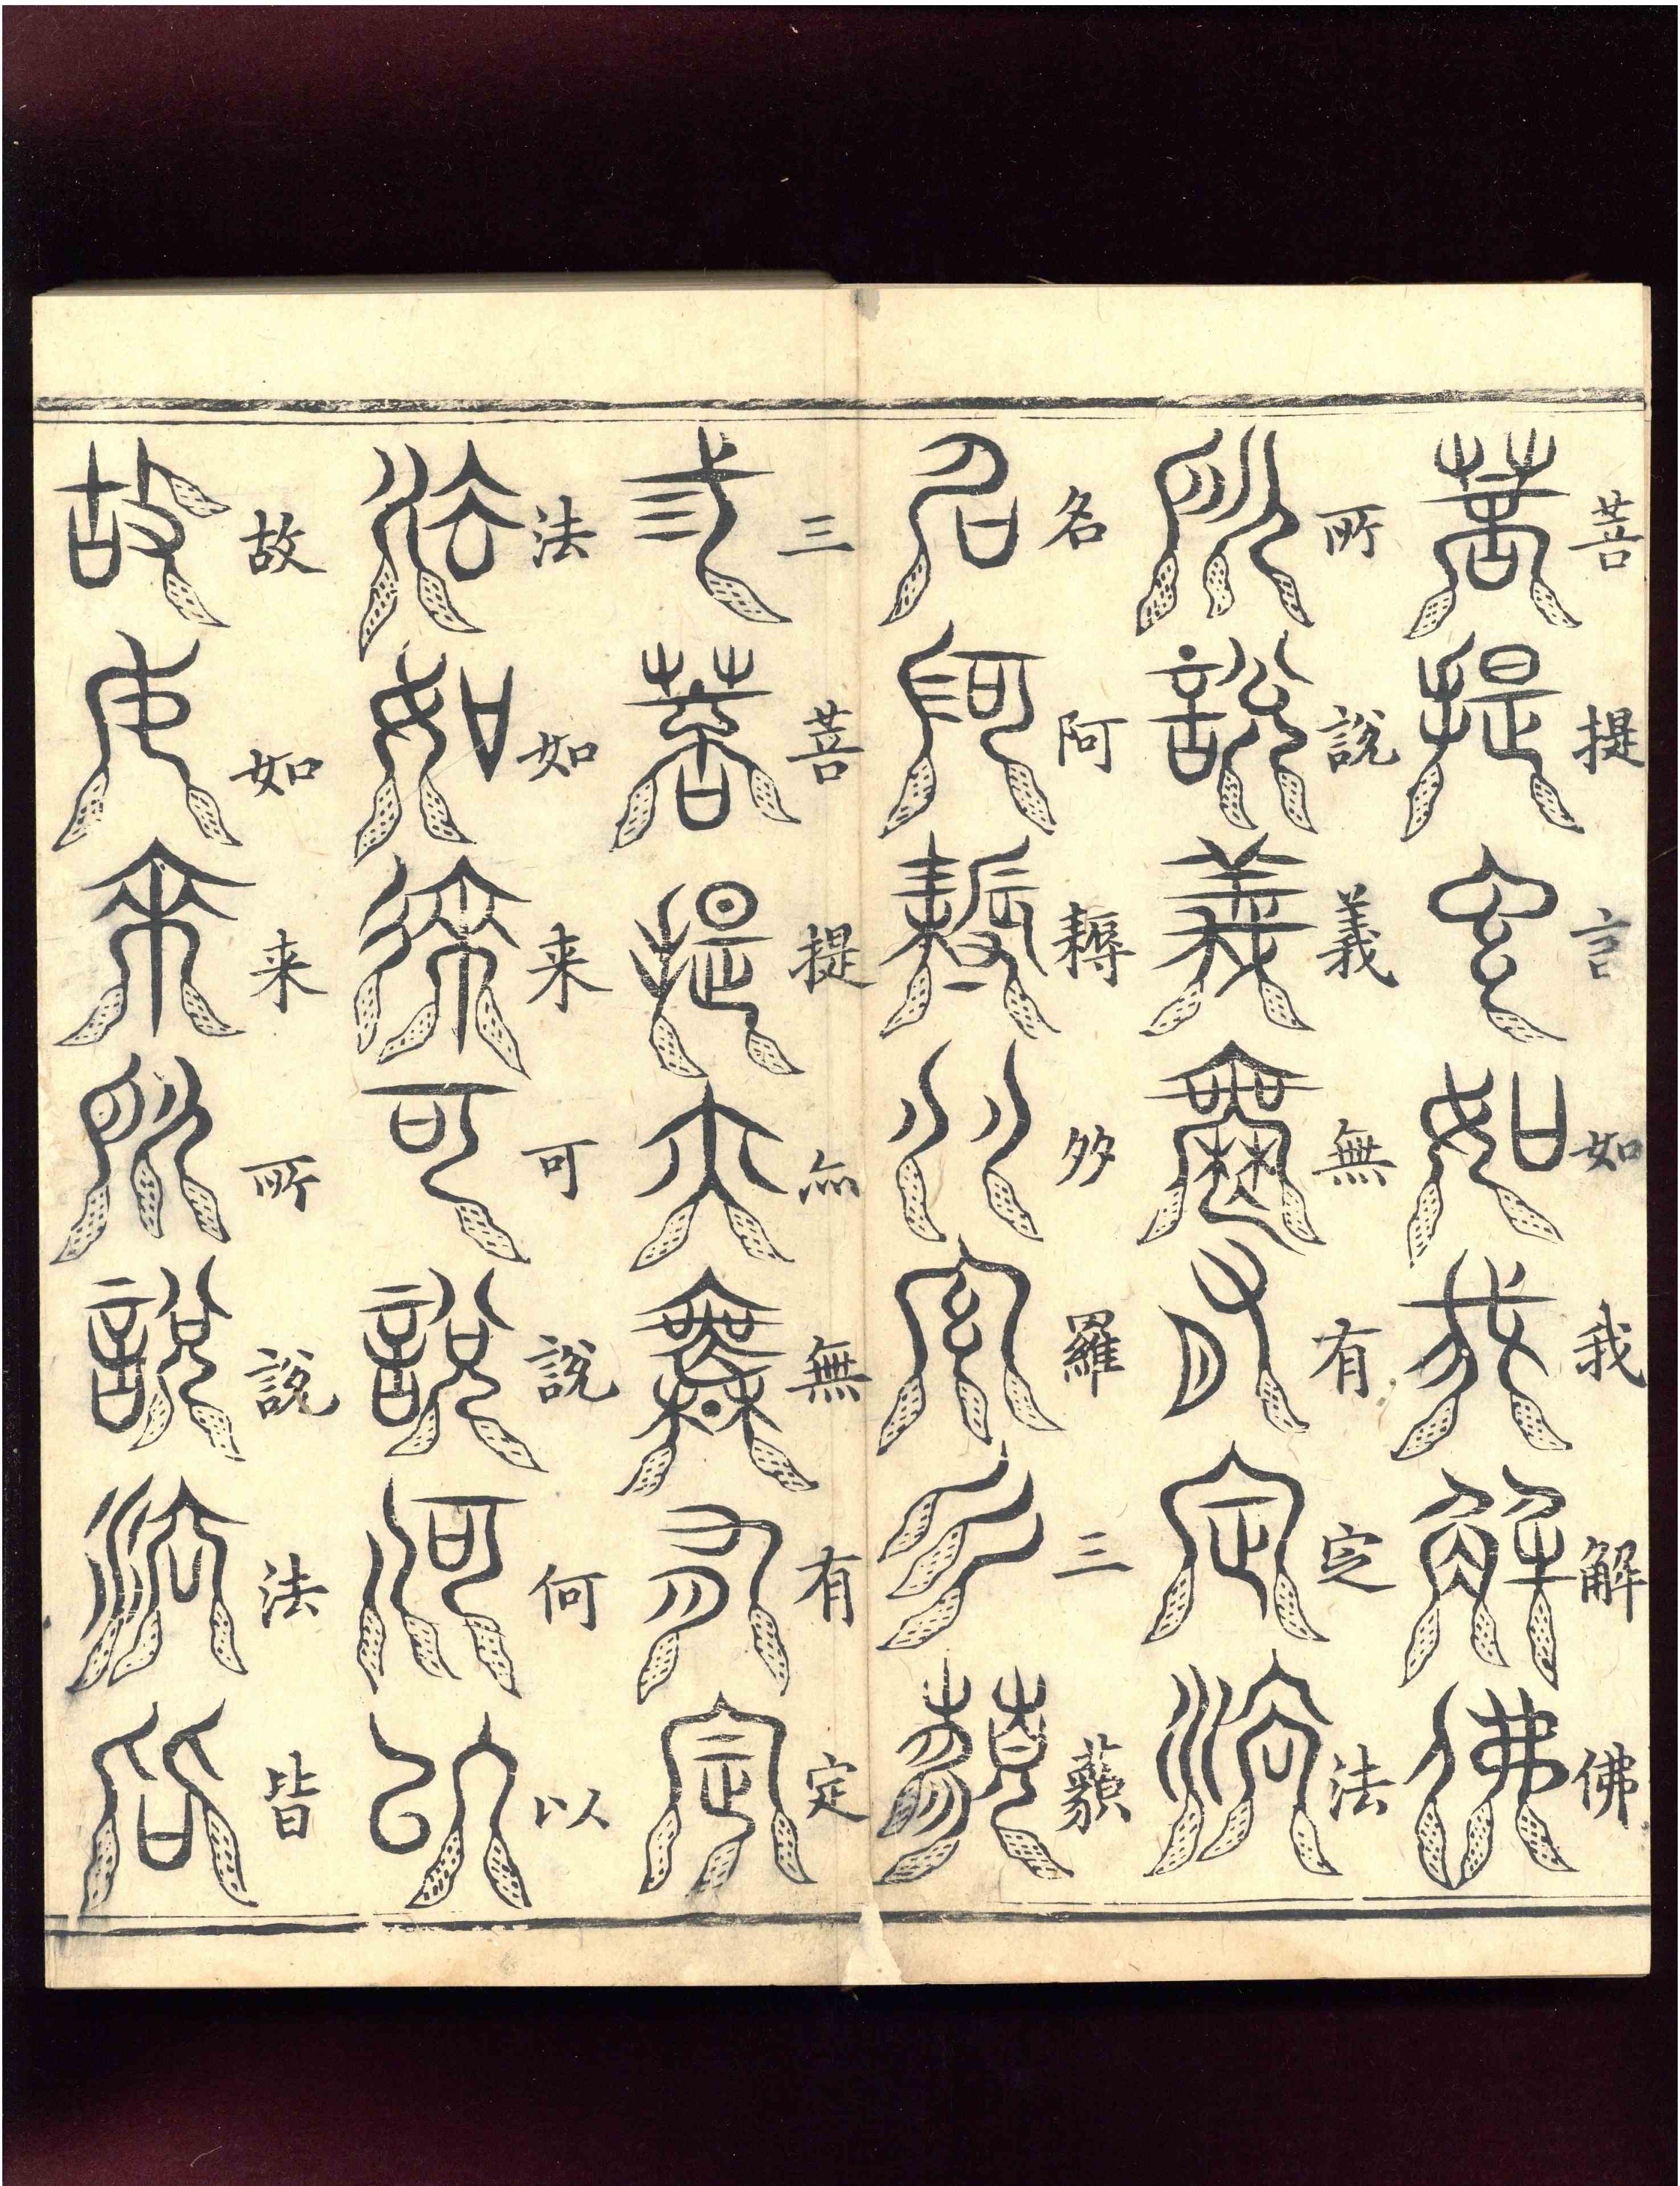 菩提言如我解佛
所說義無有定法
名阿耨多羅三藐
三菩提亦無有定
法如来可說何以
故如来所說法皆